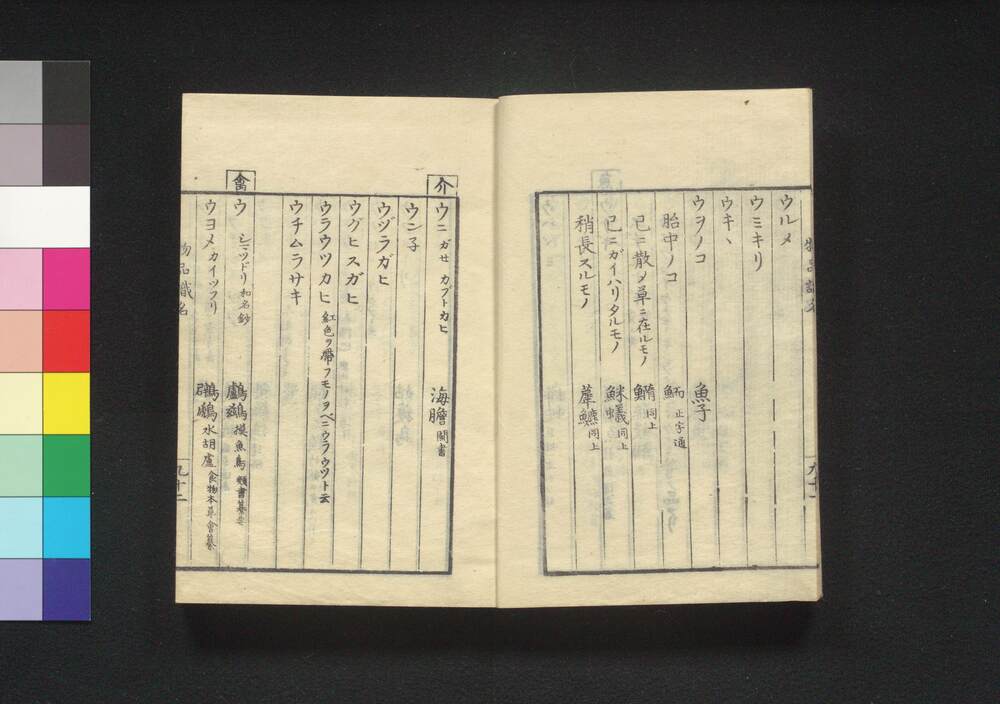 ウルメ
ウミキリ
ウキヽ
ウヲノコ 魚子
胎中ノコ 鮞 正字通
已ニ散メ草ニ在ルモノ 同上
已ニガイハリタルモノ 同上
稍長スルモノ 同上
介
ウニ ガセ カブトカヒ 海膽 閩書
ウン子
ウヅラガヒ
ウグヒスガヒ
ウラウツカヒ 紅色ヲ帶フモノヲベニウラウツト云
ウチムラサキ
禽
ウ シマツドリ 和名鈔 鸕鷀 摸魚鳥 類書纂要
ウヨメ カイツフリ 鸊鷉 水胡盧 食物本草會纂
物品識名
九十二